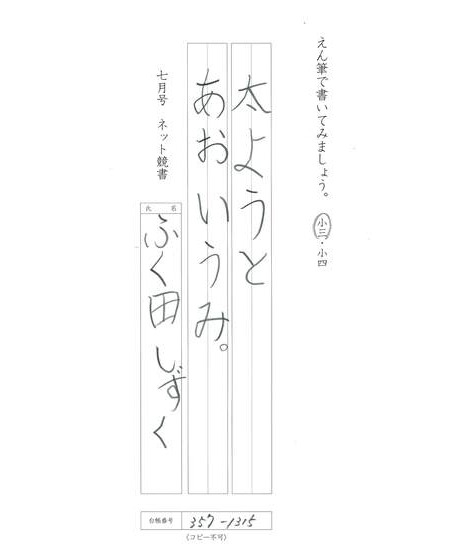 えん筆で書いてみましょう。
小三・小四
太ようと
あおいうみ。
七月号 ネット競書
氏名
ふく田しずく
台帳番号 357-1315
(コピー不可)